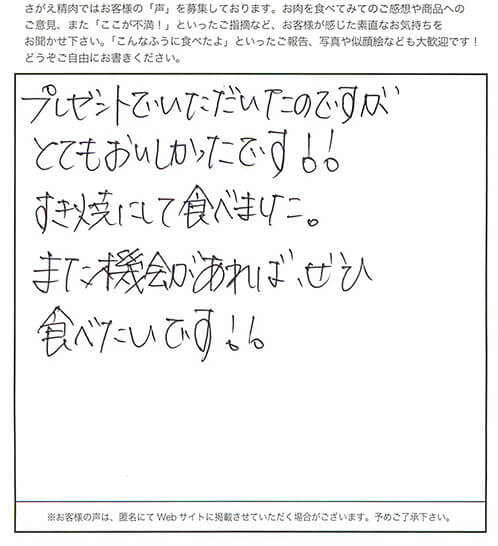 さがえ精肉ではお客様の「声」を募集しております。お肉を食べてみてのご感想や商品への
ご意見、また「ここが不満！」といったご指摘など、お客様が感じた素直なお気持ちを
お聞かせ下さい。「こんなふうに食べたよ」といったご報告、写真や似顔絵なども大歓迎です！
どうぞご自由にお書きください。
プレゼントでいただいたのですが
とてもおいしかったです!!
すき焼にして食べました。
また機会があれば、ぜひ
食べたいです!!
※お客様の声は、匿名にて Web サイトに掲載させていただく場合がございます。予めご了承下さい。